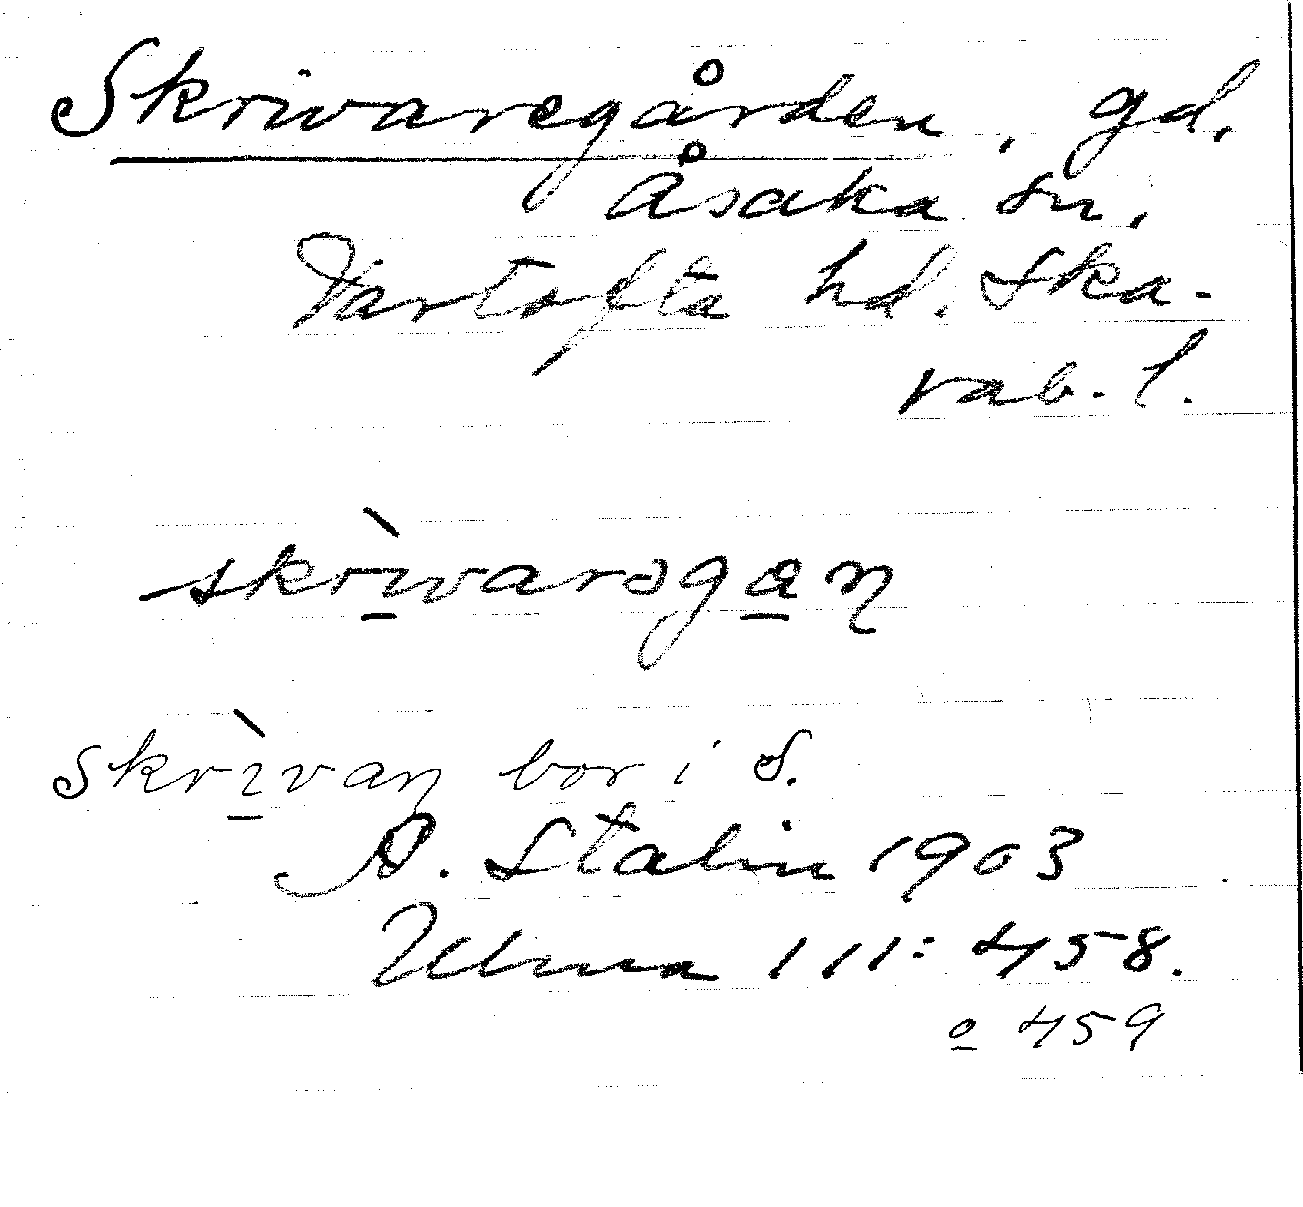 Skrivaregården, gd.
Åsaka sn,
Vartofta hd. Ska-
rab. l.
skrìvarəgan
skrìvaɳ bor i S.
A. Stalin 1903
Ulma 111:458.
o 459